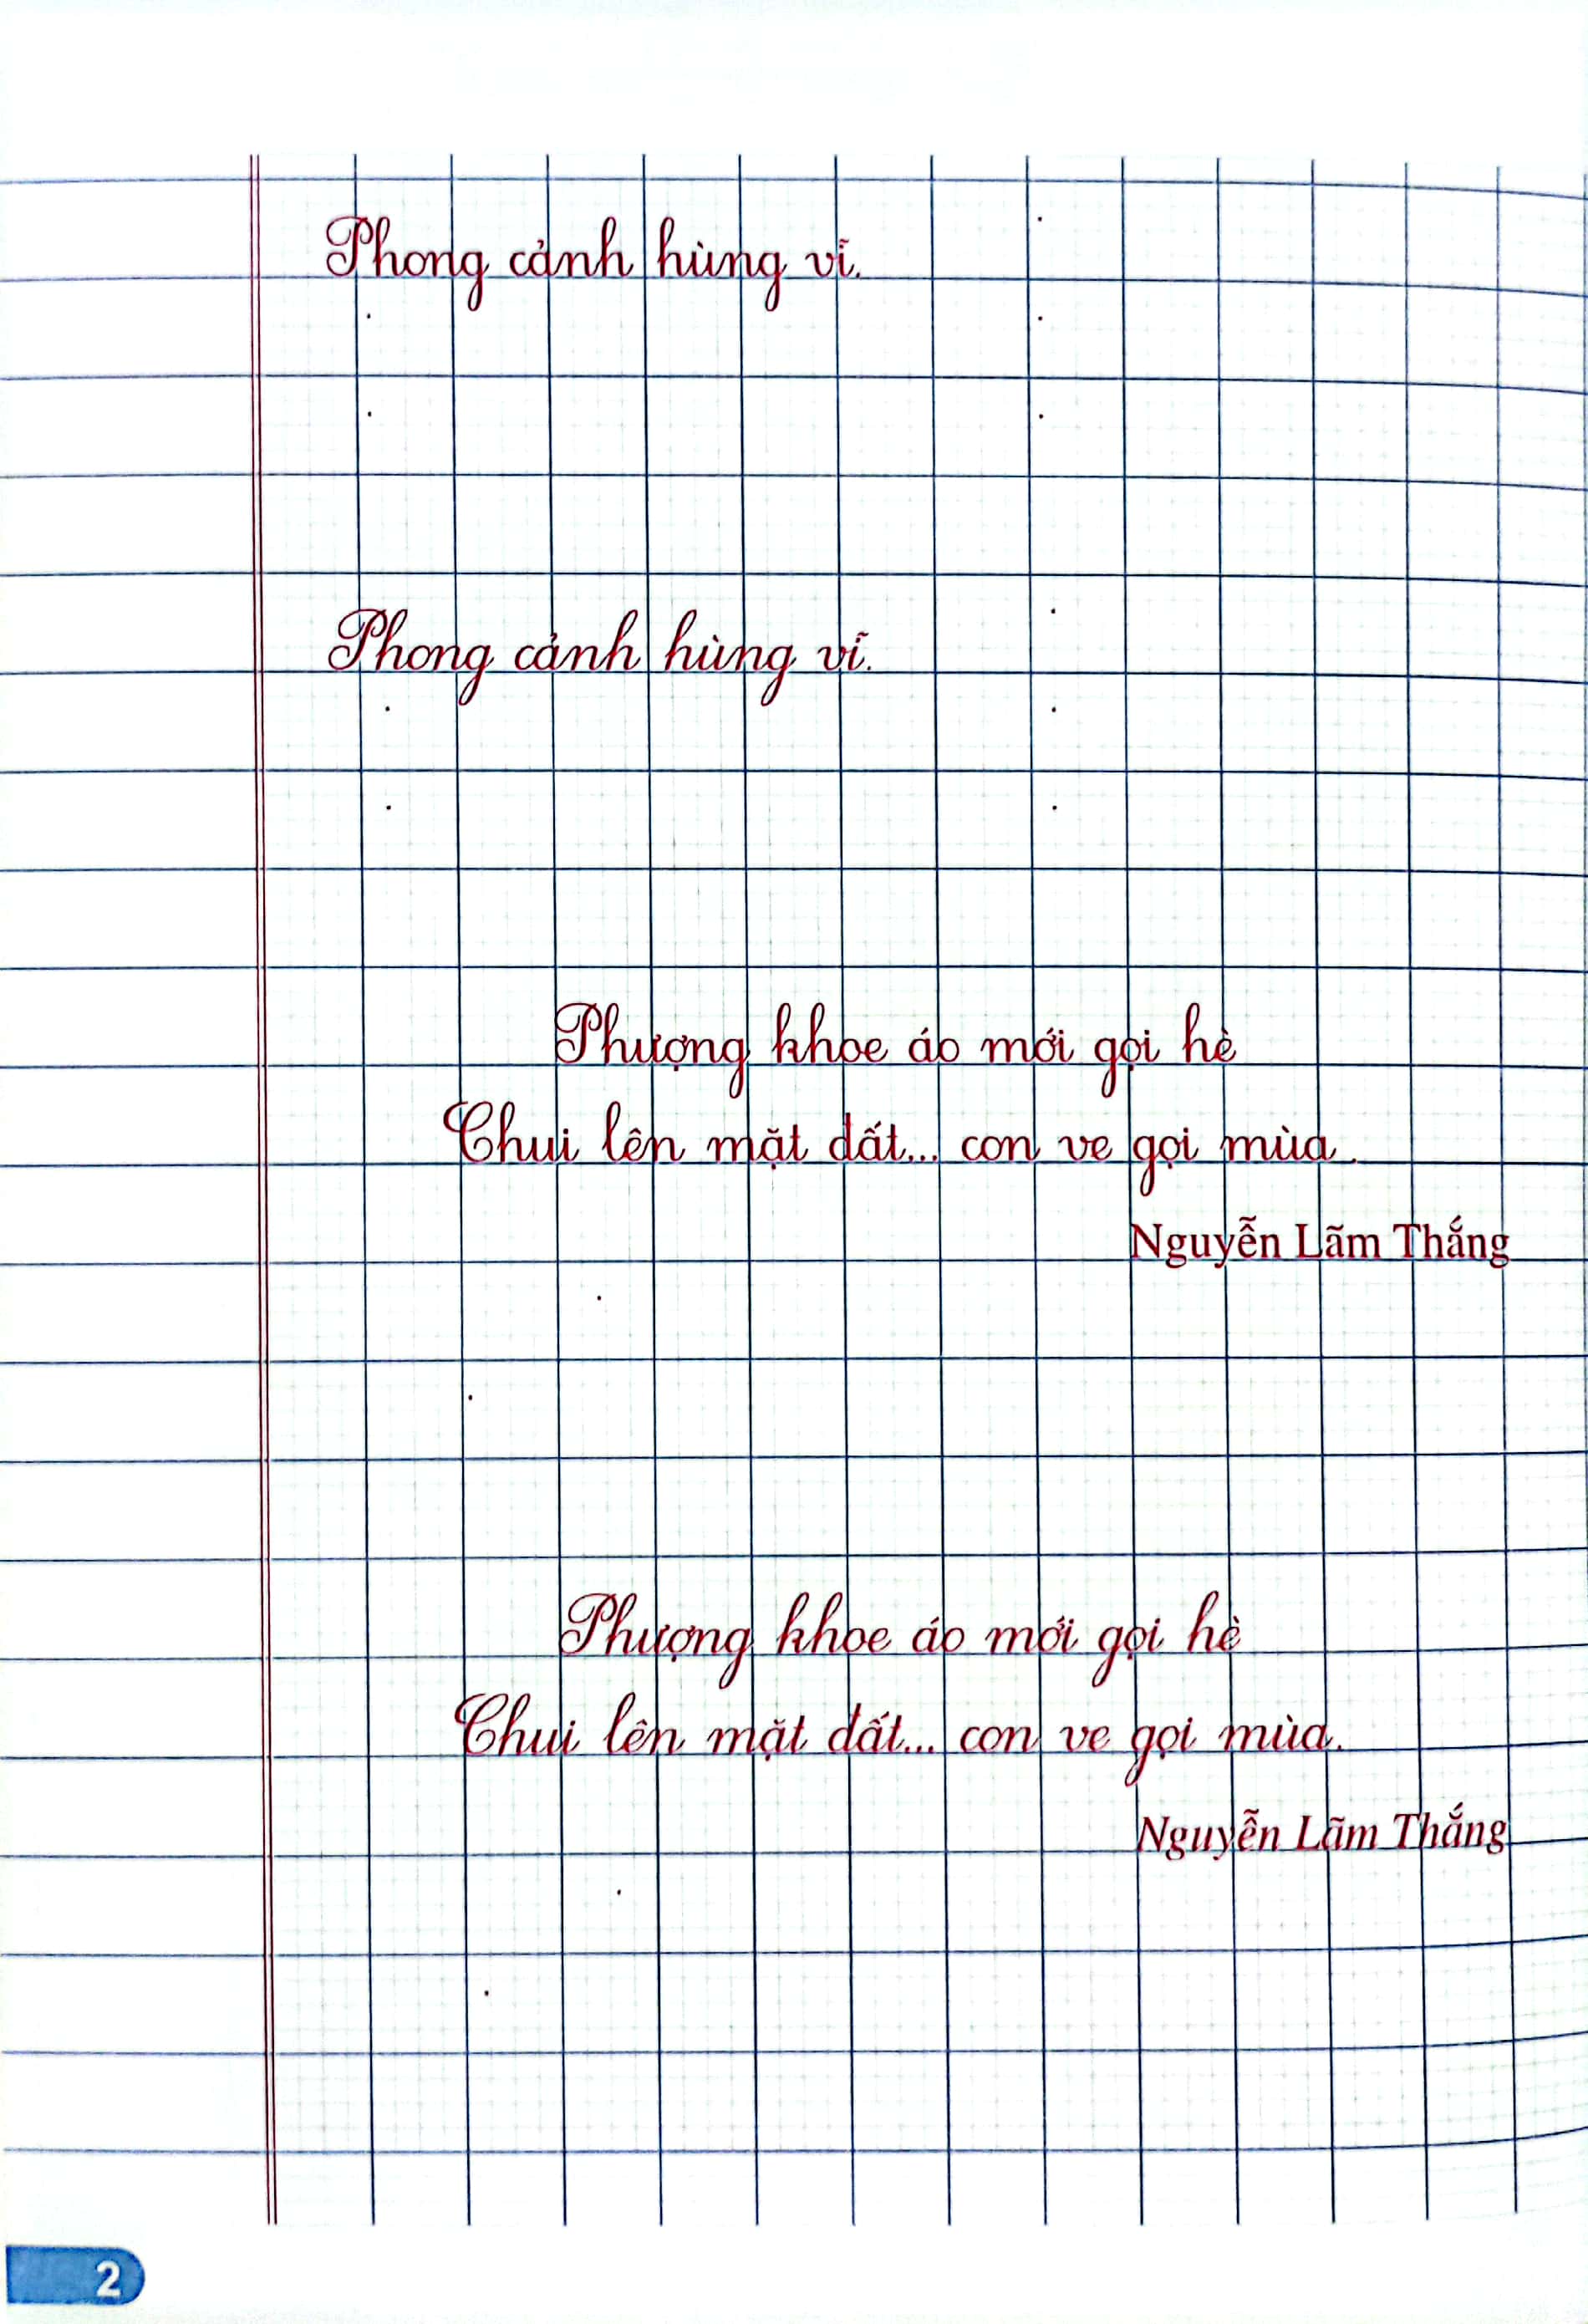 Phong cảnh hùng vĩ.
Phong cảnh hùng vĩ.
Phượng khoe áo mới gọi hè
Chui lên mặt đất... con ve gọi mùa.
Nguyễn Lãm Thắng
Phượng khoe áo mới gọi hè
Chui lên mặt đất... con ve gọi mùa.
Nguyễn Lãm Thắng
2